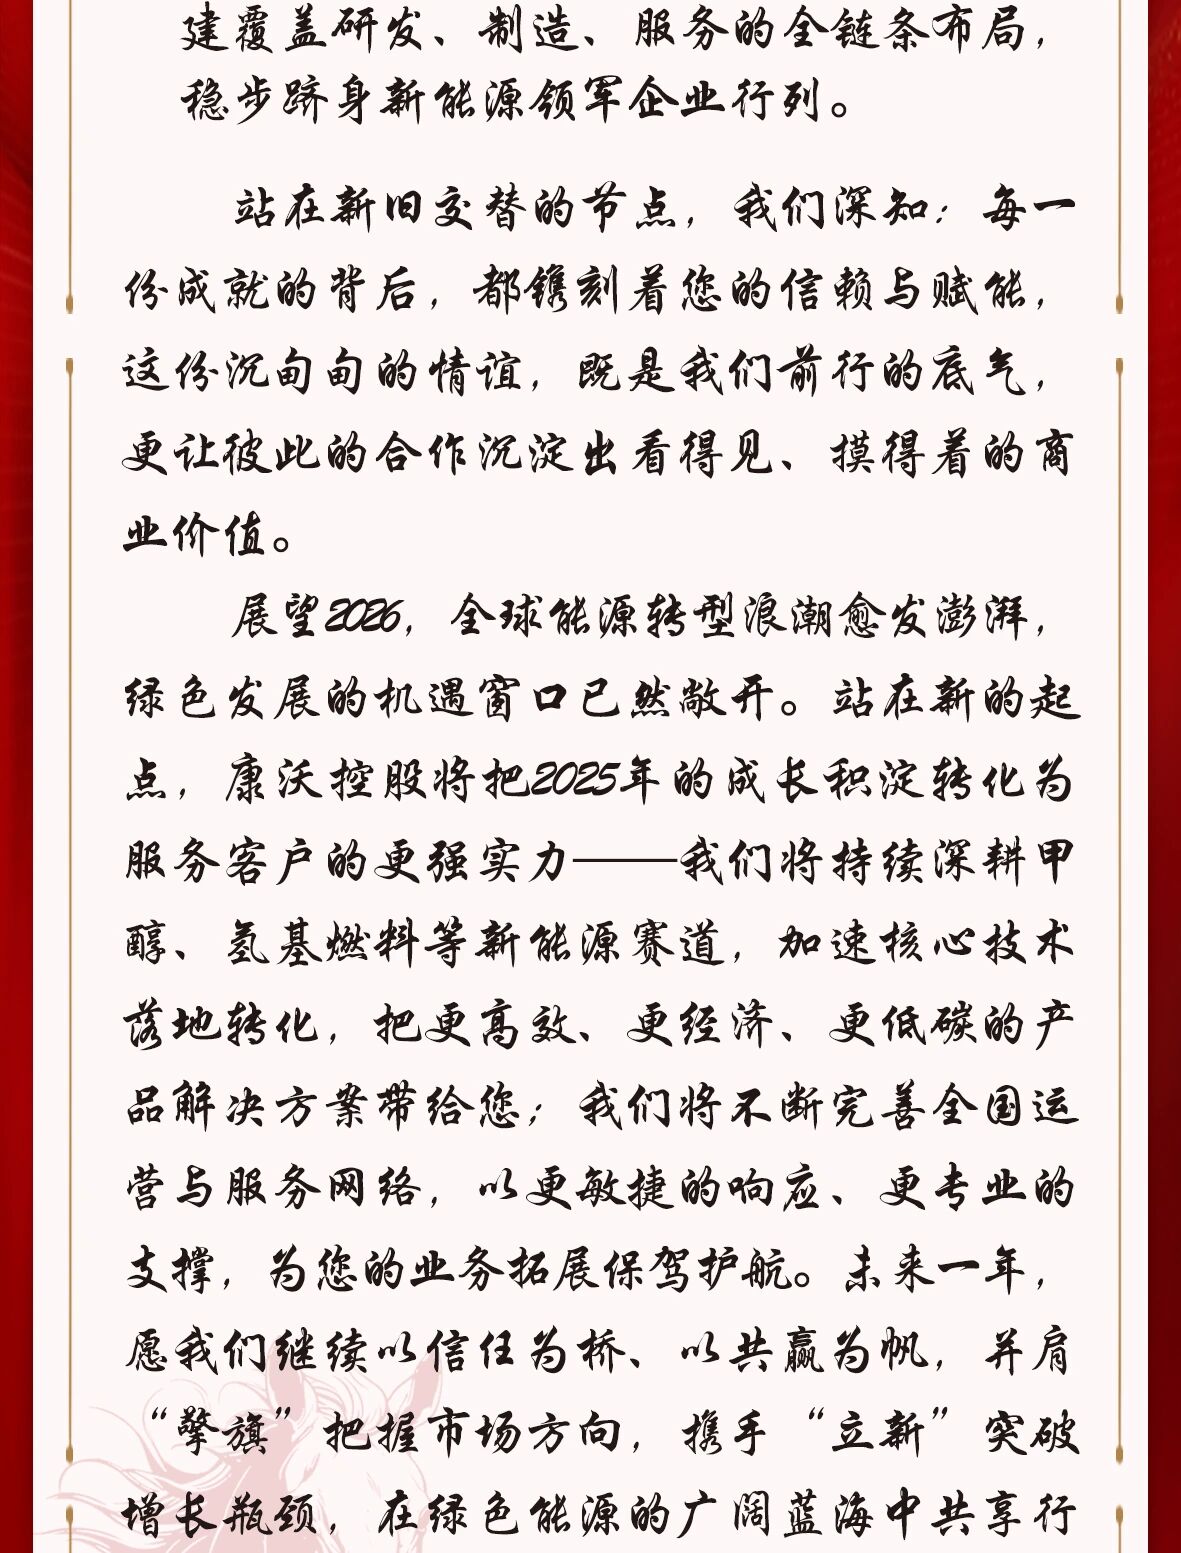 建覆盖研发、制造、服务的全链条布局，
稳步跻身新能源领军企业行列。
站在新旧交替的节点，我们深知：每一
份成就的背后，都镌刻着您的信赖与赋能，
这份沉甸甸的情谊，既是我们前行的底气，
更让彼此的合作沉淀出看得见、摸得着的商
业价值。
展望2026，全球能源转型浪潮愈发澎湃，
绿色发展的机遇窗口已然敞开。站在新的起
点，康沃控股将把2025年的成长积淀转化为
服务客户的更强实力——我们将持续深耕甲
醇、氢基燃料等新能源赛道，加速核心技术
落地转化，把更高效、更经济、更低碳的产
品解决方案带给您；我们将不断完善全国运
营与服务网络，以更敏捷的响应、更专业的
支撑，为您的业务拓展保驾护航。未来一年，
愿我们继续以信任为桥、以共赢为帆，并肩
“擎旗”把握市场方向，携手“立新”突破
增长瓶颈，在绿色能源的广阔蓝海中共享行